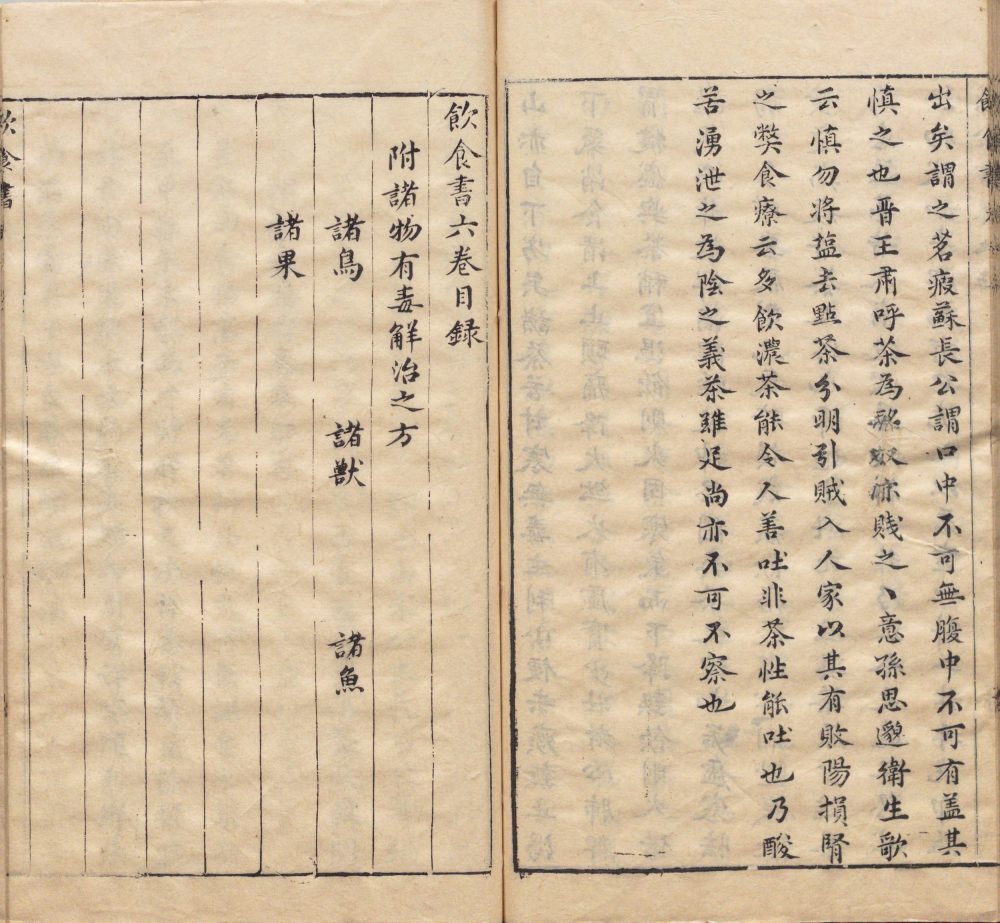 出矣謂之茗疲蘇長公謂口中不可無腹中不可有盖其
慎之也晋王肅呼茶為酪奴亦賤之丶意孫思邈衛生歌
云慎勿將塩去點茶分明引賊入人家以其有敗陽損腎
之弊食療云多飲濃茶能令人善吐非茶性能吐也乃酸
苦湧泄之為陰之義茶雖足尚亦不可不察也
飲食書六卷目録
附諸物有毒解治之方
諸鳥 諸獸 諸魚
諸果
飲食書